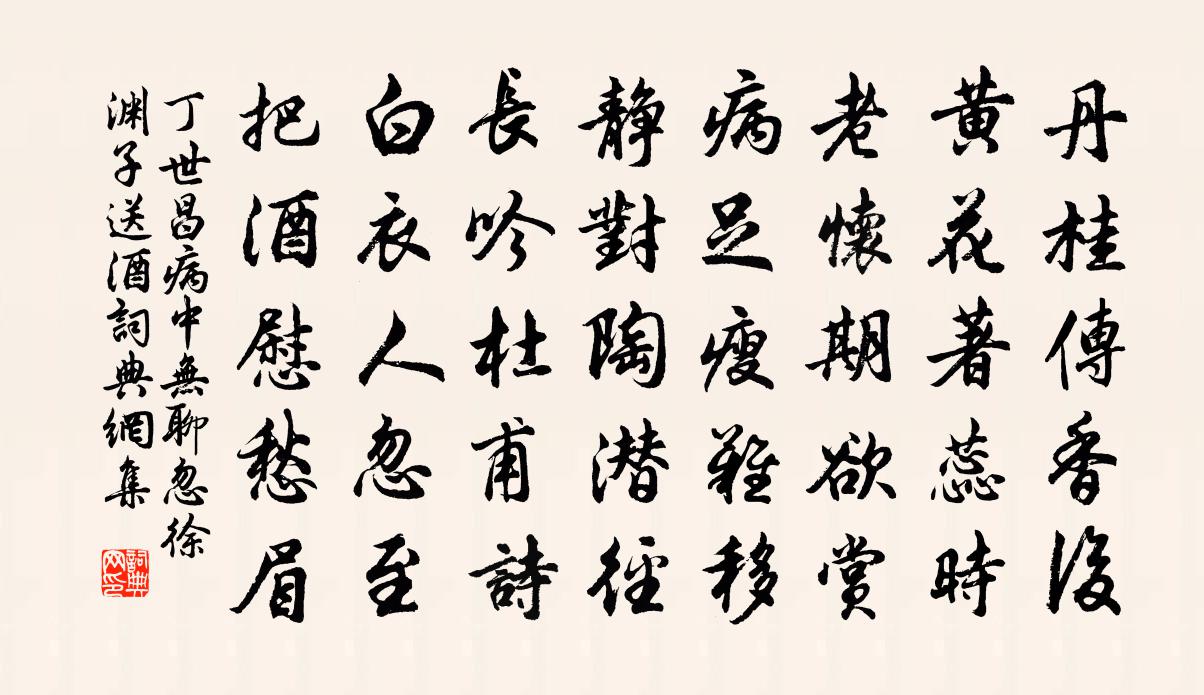 丹桂傳香後
黄花著蕊時
老懷期欲赏
病足瘦難移
静對陶潜徑
長吟杜甫詩
白衣人忽至
把酒慰愁眉
丁世昌病中無聊忽徐
渊子送酒詞典網集
詞典
网印